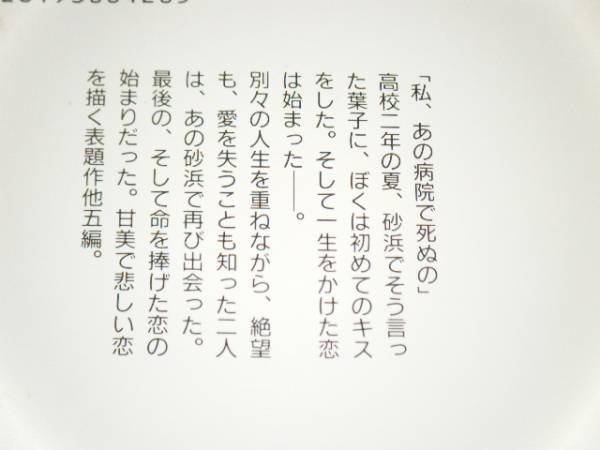 「私、あの病院で死ぬの」
高校二年の夏、砂浜でそう言っ
た葉子に、ぼくは初めてのキス
をした。そして一生をかけた恋
は始まった――。
別々の人生を重ねながら、絶望
も、愛を失うことも知った二人
は、あの砂浜で再び出会った。
最後の、そして命を捧げた恋の
始まりだった。甘美で悲しい恋
を描く表題作他五編。